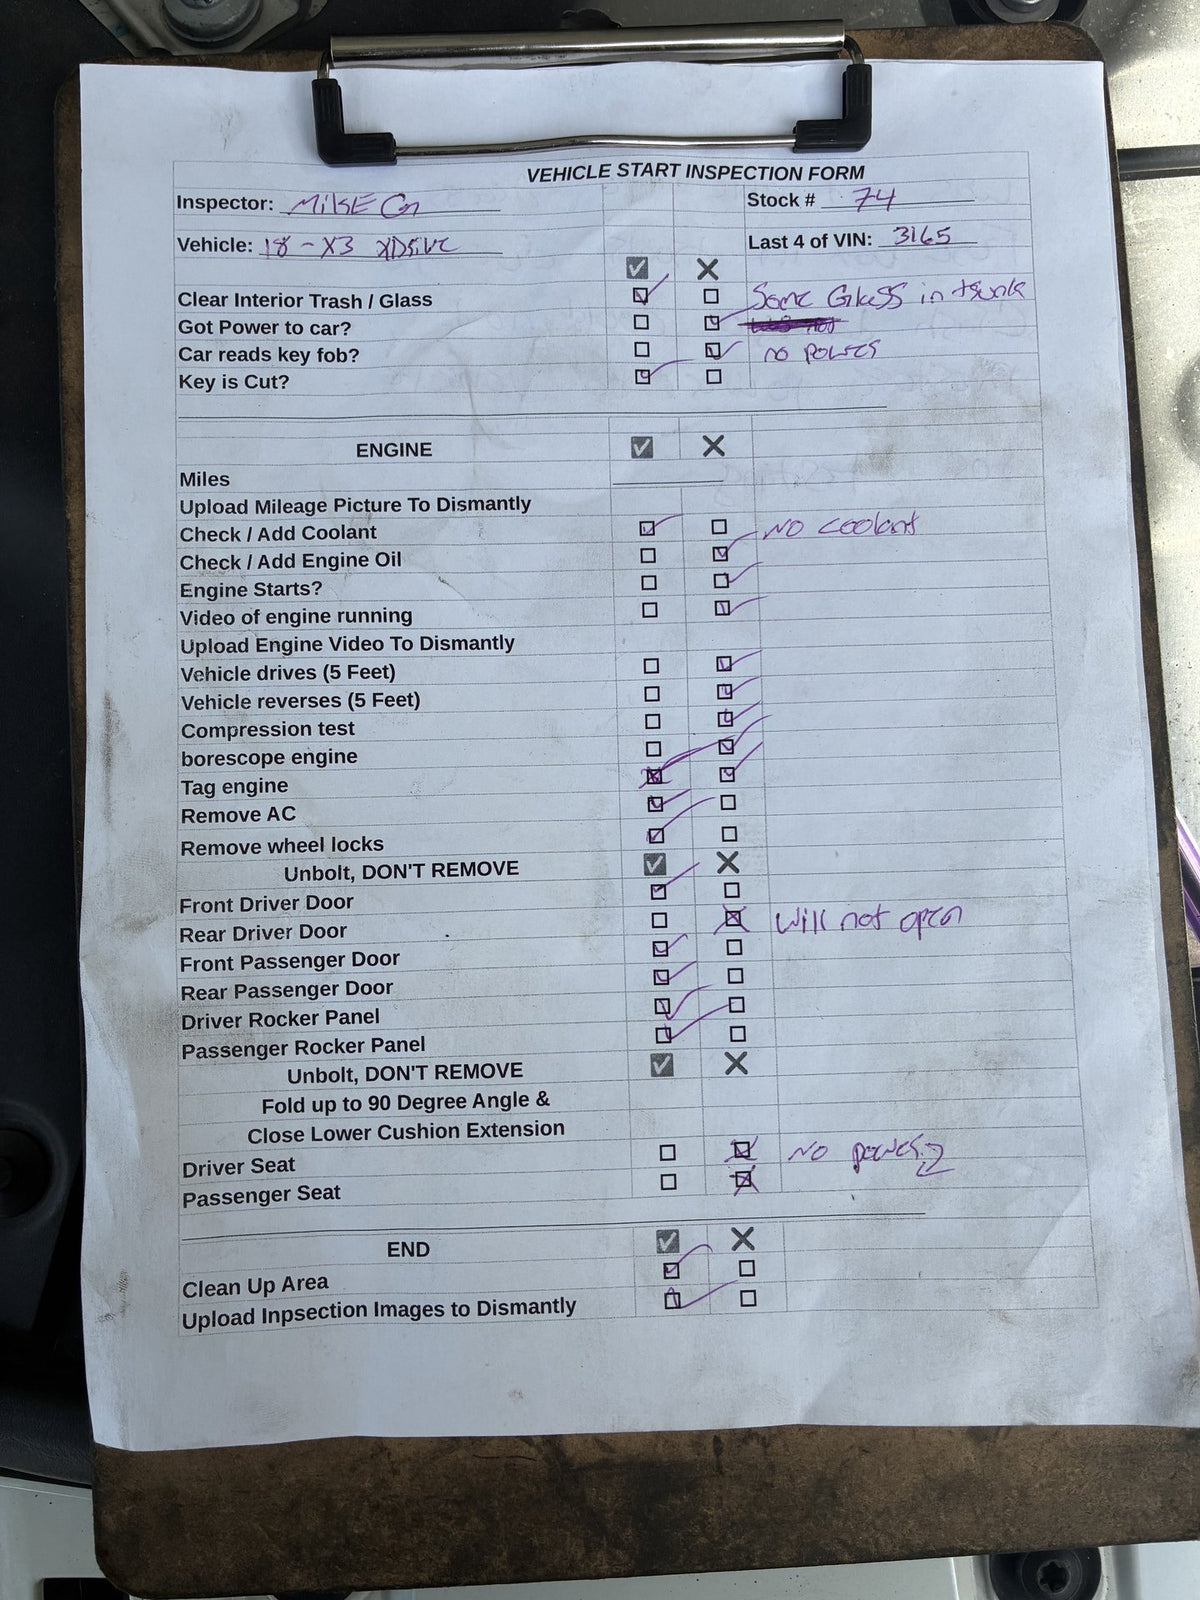 VEHICLE START INSPECTION FORM
Inspector: MIKE G Stock # 74
Vehicle: 18 - X3 XDRIVE Last 4 of VIN: 3165
☑ ✕
Clear Interior Trash / Glass ☑ ☐ Some Glass in trunk
Got Power to car? ☐ ☑
Car reads key fob? ☐ ☑ no power
Key is Cut? ☑ ☐
ENGINE ☑ ✕
Miles
Upload Mileage Picture To Dismantly
Check / Add Coolant ☑ ☐ NO coolant
Check / Add Engine Oil ☐ ☑
Engine Starts? ☐ ☑
Video of engine running ☐ ☑
Upload Engine Video To Dismantly
Vehicle drives (5 Feet) ☐ ☑
Vehicle reverses (5 Feet) ☐ ☑
Compression test ☐ ☑
borescope engine ☐ ☑
Tag engine ☒ ☑
Remove AC ☑ ☐
Remove wheel locks ☑ ☐
Unbolt, DON'T REMOVE ☑ ✕
Front Driver Door ☑ ☐
Rear Driver Door ☐ ☒ Will not open
Front Passenger Door ☑ ☐
Rear Passenger Door ☑ ☐
Driver Rocker Panel ☑ ☐
Passenger Rocker Panel ☑ ☐
Unbolt, DON'T REMOVE ☑ ✕
Fold up to 90 Degree Angle &
Close Lower Cushion Extension
Driver Seat ☐ ☒ NO power
Passenger Seat ☐ ☒
END ☑ ✕
Clean Up Area ☑ ☐
Upload Inpsection Images to Dismantly ☑ ☐